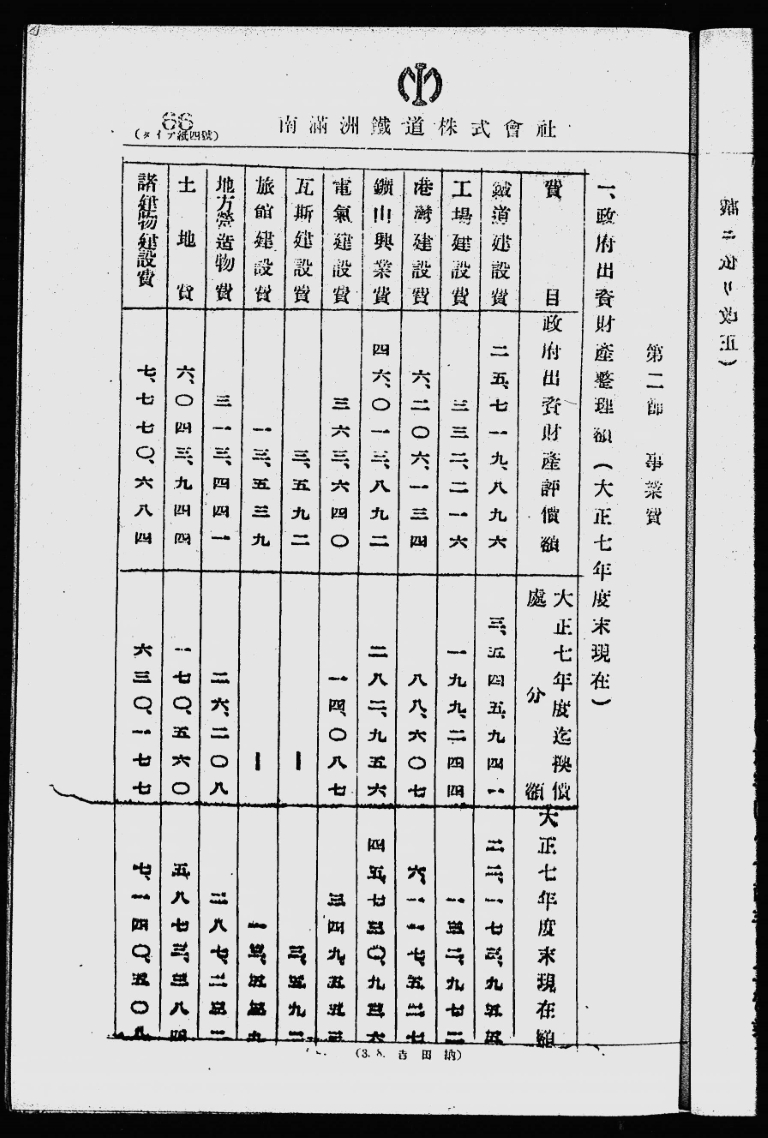 66
(タイプ紙四號)
南滿洲鐵道株式會社
ニ依リ改正)
第二節　事業費
一、政府出資財産整理額(大正七年度末現在)
費目　政府出資財産評價額　大正七年度迄換價處分額　大正七年度末現在額
鐵道建設費　二五、七一九、八九六　三、五四五、九四一　二二、一七三、九五五
工場建設費　三三二、二一六　一九九、二四四　一三二、九七二
港灣建設費　六、二〇六、一三四　八八、六〇七　六、一一七、五二七
鑛山興業費　四六、〇一三、八九二　二八二、九五六　四五、七三〇、九三六
電氣建設費　三六三、六四〇　一四、〇八七　三四九、五五三
瓦斯建設費　三、五九二　ー　三、五九二
旅館建設費　一三、五三九　ー　一三、五三九
地方營造物費　三一三、四四一　二六、二〇八　二八七、二三三
土地費　六、〇四三、九四四　一七〇、五六〇　五、八七三、三八四
諸建物建設費　七、七七〇、六八四　六三〇、一七七　七、一四〇、五〇七
(3. 8. 吉田納)